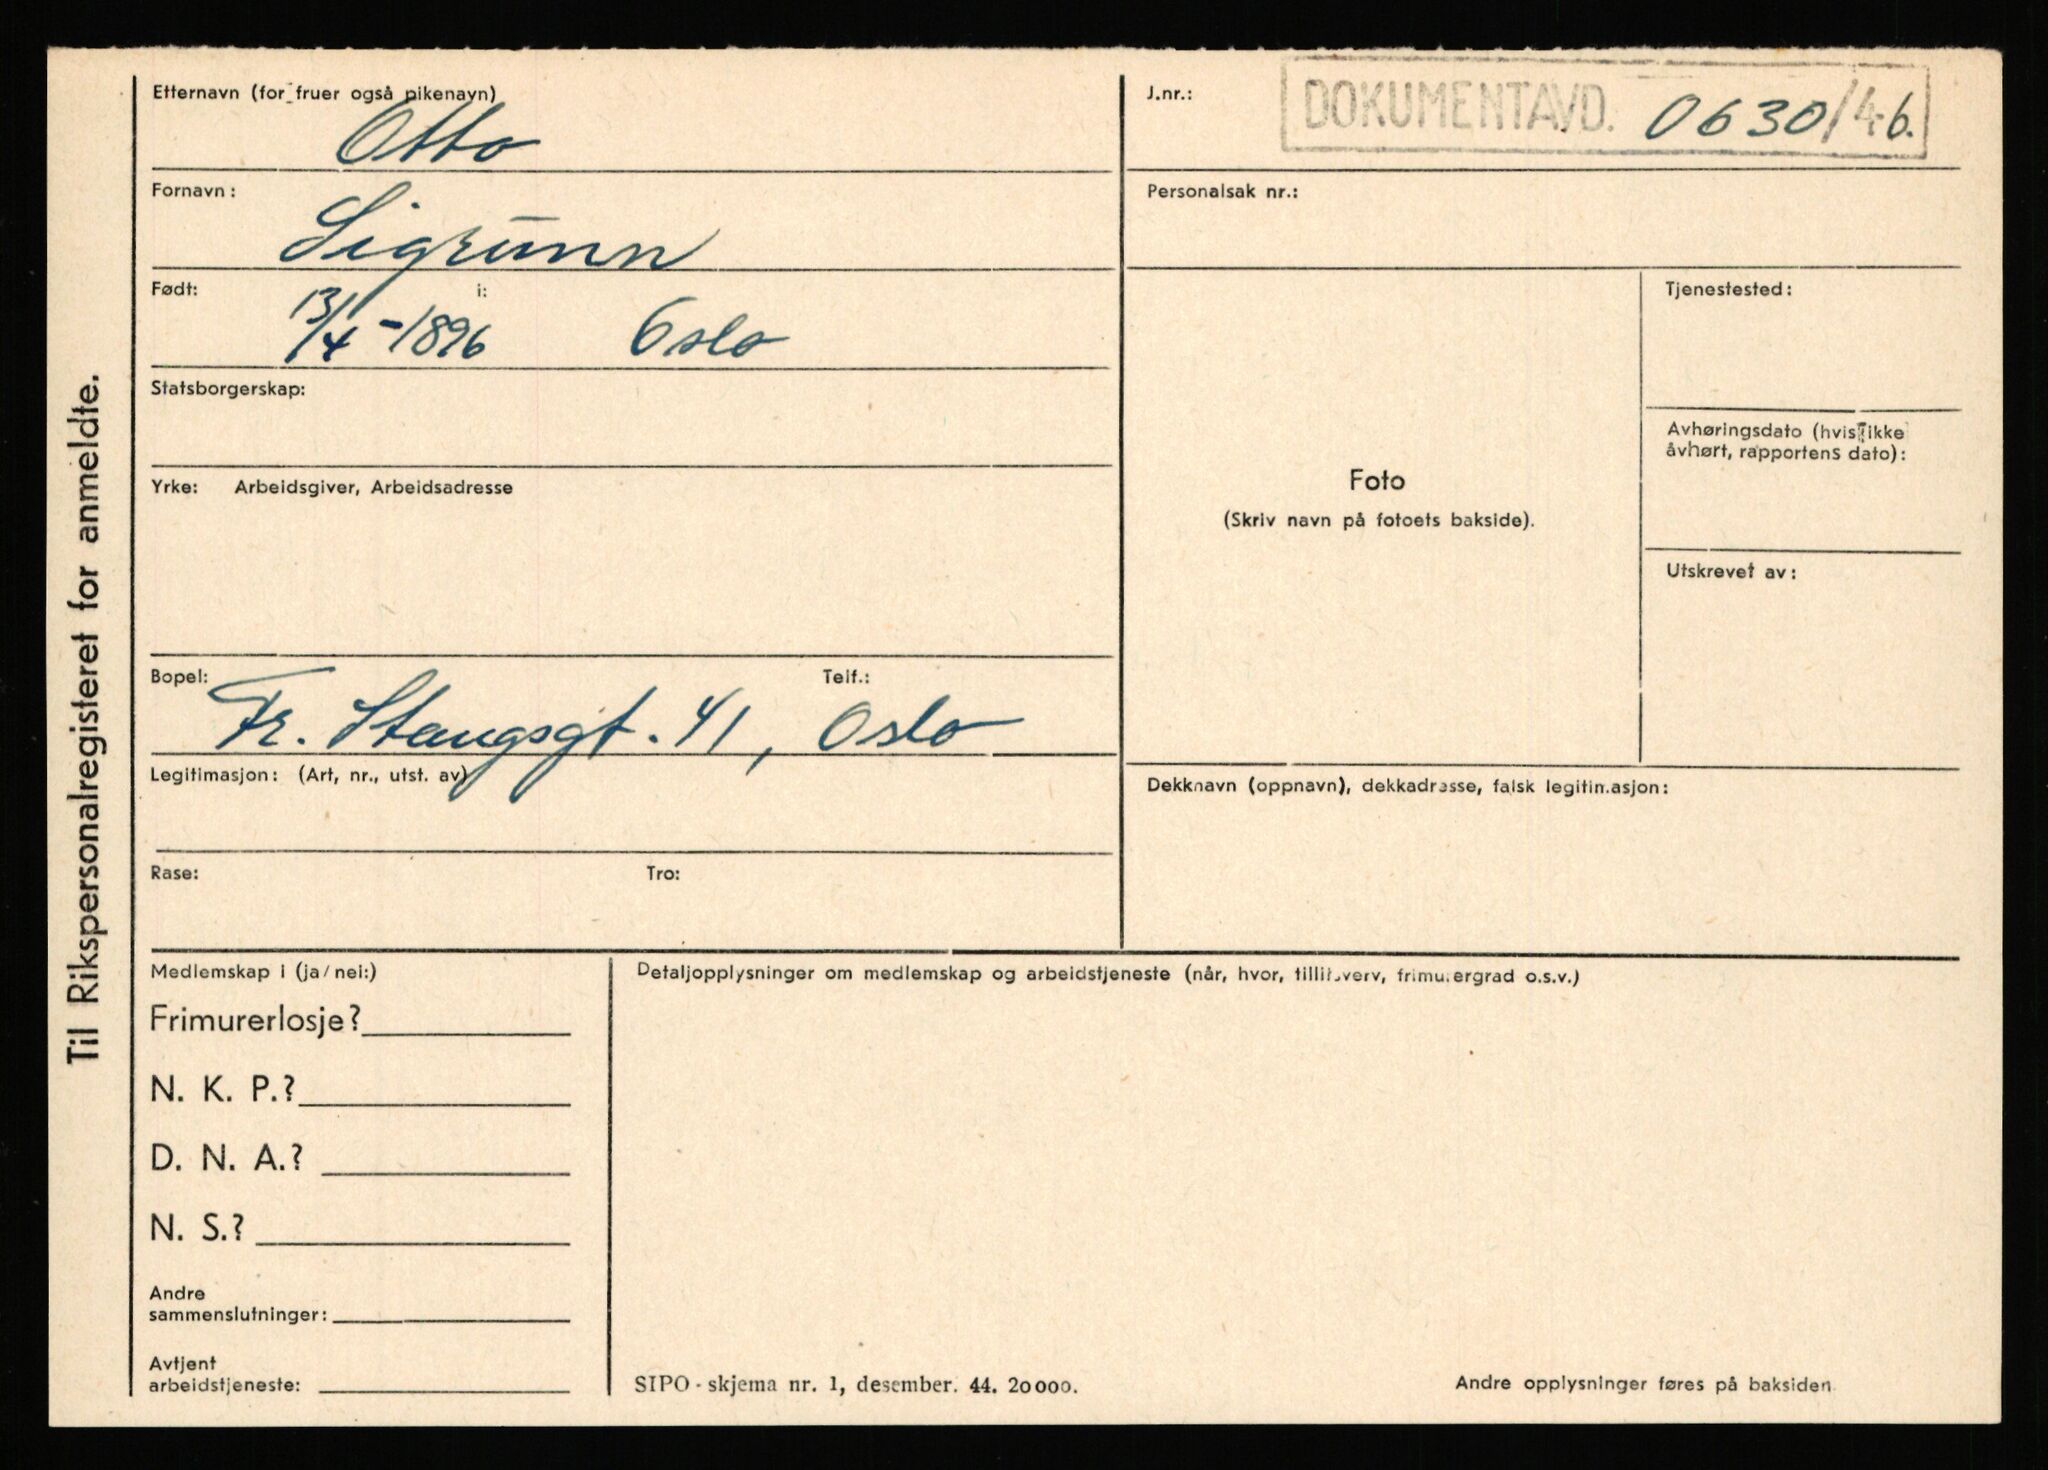 Til Rikspersonalregisteret for anmeldte.
Etternavn (for fruer også pikenavn)
Otto
Fornavn:
Sigrunn
Født: i:
13/4-1896 Oslo
Statsborgerskap:
Yrke: Arbeidsgiver, Arbeidsadresse
Bopel: Telf.:
Fr. Stangsgt. 41, Oslo
Legitimasjon: (Art, nr., utst. av)
Rase: Tro:
J.nr.: DOKUMENTAVD. 0630/46.
Personalsak nr.:
Foto
(Skriv navn på fotoets bakside).
Tjenestested:
Avhøringsdato (hvis ikke
åvhørt, rapportens dato):
Utskrevet av:
Dekknavn (oppnavn), dekkadresse, falsk legitimasjon:
Medlemskap i (ja/nei:)
Frimurerlosje?
N. K. P.?
D. N. A.?
N. S.?
Andre
sammenslutninger:
Avtjent
arbeidstjeneste:
Detaljopplysninger om medlemskap og arbeidstjeneste (når, hvor, tillitsverv, frimurergrad o.s.v.)
SIPO - skjema nr. 1, desember. 44. 20000.
Andre opplysninger føres på baksiden